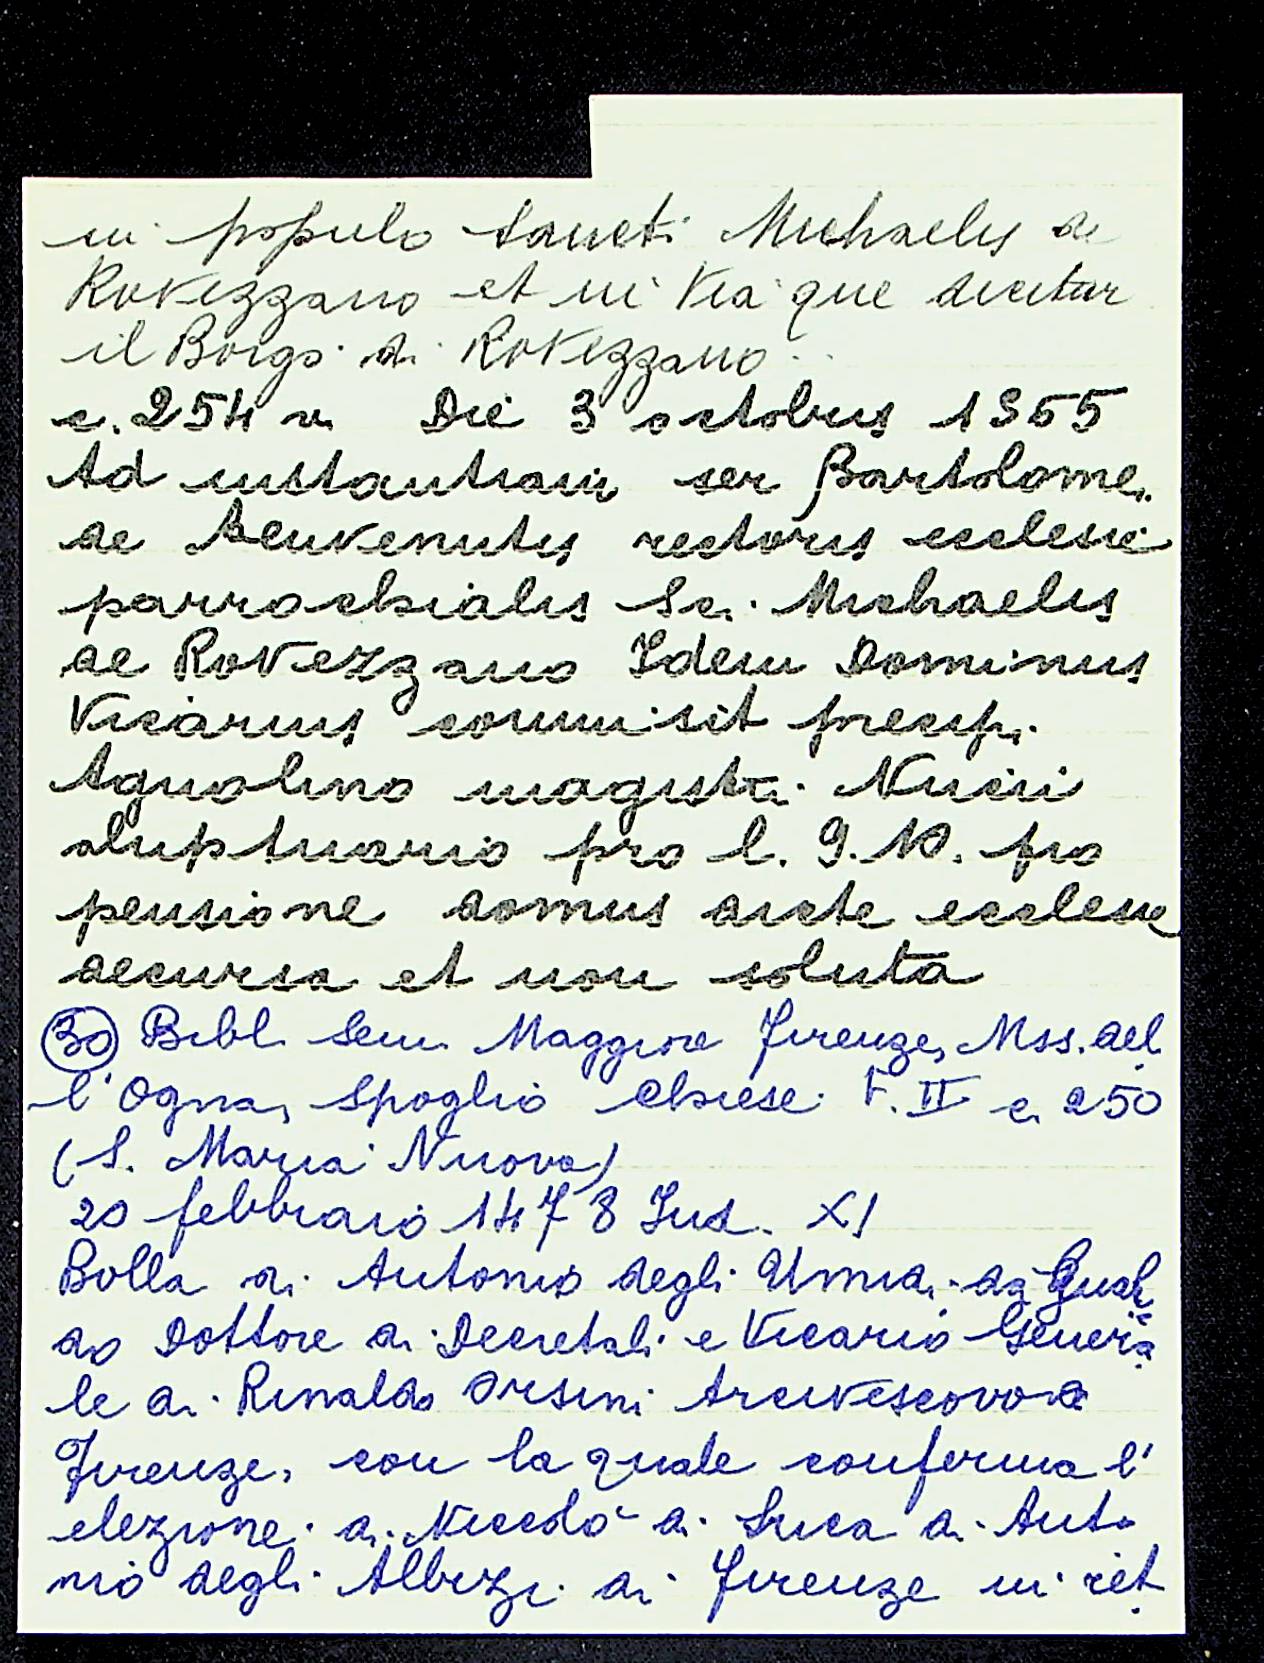 in populo Sancti Michaelis de
Rovezzano et in Via que dicitur
il Borgo di Rovezzano..
c. 254 v. Die 3 octobris 1365
Ad instantiam ser Bartolomei
de Benvenutis rectoris ecclesie
parrochialis Sc. Michaelis
de Rovezzano Idem Dominus
Vicarius commisit precip.
Agnolino magistri Nucii
pro l. 9. 10. pro
pensione domus dicte ecclesie
decursa et non soluta
(30) Bibl. Sem. Maggiore Firenze, Mss. del
l'Ogna, Spoglio Chiese. F. II c. 250
(S. Maria Nuova)
20 febbraio 1478 Ind. XI
Bolla di Antonio degli da Gual
do Dottore di Decretali e Vicario Genera
le di Rinaldo Orsini Arcivescovo di
Firenze, con la quale conferma l'
elezione di Niccolò di Luca di Anto
nio degli Albizzi di Firenze in ret